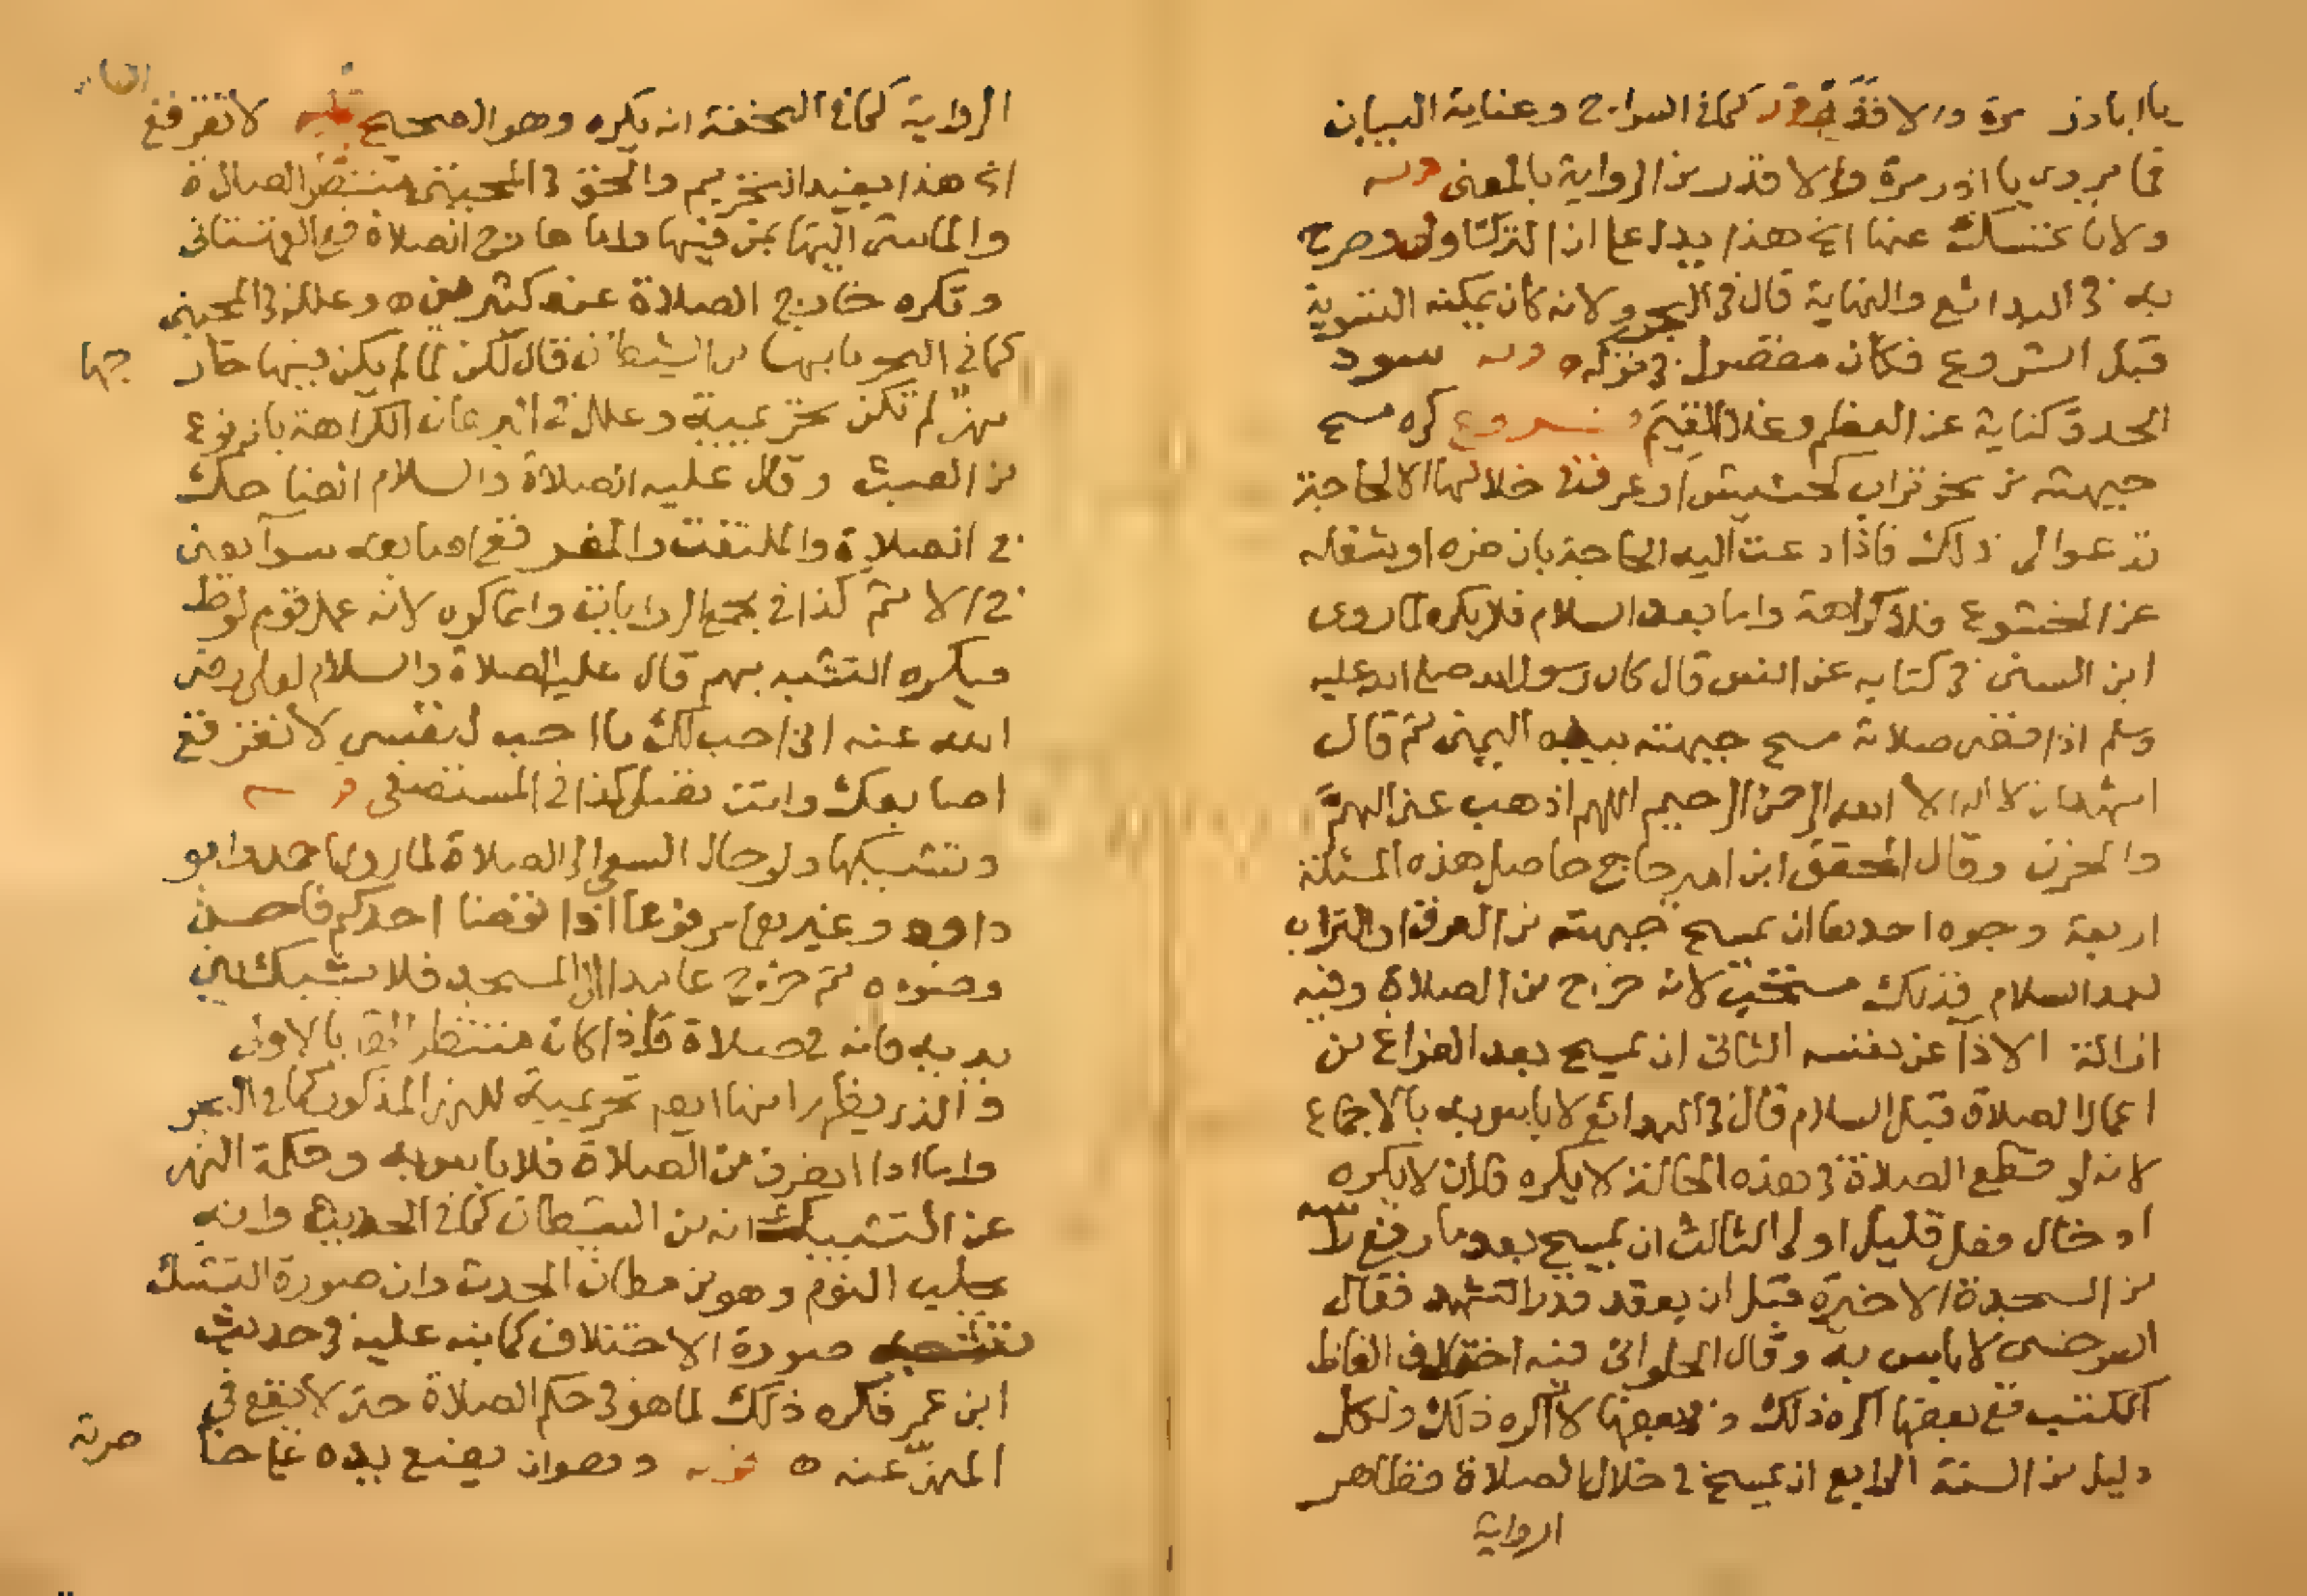 يا اباذر مرة والا فذر كما في السراج وعناية البيان
فما يروى يا اباذر مرة والا فذر من الرواية بالمعنى
ولانا نتمسك عنها الخ هذا يدل على ان الترك اولى وصرح
به في البدائع والنهاية قال في البحر ولانه كان يمكنه التسوية
قبل الشروع فكان مفصولا في تركه
الحدة كناية عن العظم فروع كره مسح
جبهته من نحو تراب كحشيش او عرق في خلالها الا لحاجة
تدعوا الى ذلك فاذا دعت اليه الحاجة بان ضره او يشغله
عن الخشوع فلا كراهة واما بعد السلام فلا يكره لما روى
ابن السنى في كتابه عن انس قال كان رسول الله صلى الله عليه
وسلم اذا قضى صلاته مسح جبهته بيده اليمنى ثم قال
اشهد ان لا اله الا الله الرحمن الرحيم اللهم اذهب عني الهم
والحزن وقال المحقق ابن امير حاج حاصل هذه المسئلة
اربعة وجوه احدها ان يمسح جبهته من العرق او التراب
بعد السلام فذلك مستحب لانه خرج من الصلاة وفيه
ازالة الاذا عن نفسه الثانى ان يمسح بعد الفراغ من
اعمال الصلاة قبل السلام قال في البدائع لا باس به بالاجماع
لانه لو قطع الصلاة في هذه الحالة لا يكره فلان لا يكره
ادخال فعل قليل اولى الثالث ان يمسح بعد ما رفع راسه
من السجدة الاخيرة قبل ان يقعد قدر التشهد فقال
السرخسى لا باس به وقال الحلوانى فيه اختلاف الفاظ
الكتب ففي بعضها اكره ذلك وفي بعضها لا اكره ذلك ولكل
دليل من السنة الرابع ان يمسح في خلال الصلاة فظاهر
الرواية
الرواية كما في التحفة انه يكره وهو الصحيح لا تفرقع
الخ هذا يفيد التحريم والحق في المجتبى منتظر الصلاة
والماشى اليها بمن فيها واما خارج الصلاة ففي القهستانى
وتكره خارج الصلاة عند كثيرين ه وعلله في المجتبى
كما في البحر بانها من الشيطان قال لكن لما لم يكن فيها خارجها
نهى لم تكن تحريمية وعلل في البرهان الكراهة بانه نوع
من العبث وقال عليه الصلاة والسلام الضاحك
في الصلاة والملتفت والمفرقع اصابعه سوآ يعنى
في الاثم كذا في مجمع الروايات وانما كره لانه عمل قوم لوط
فيكره التشبه بهم قال عليه الصلاة والسلام لعلى رضى
الله عنه انى احب لك ما احب لنفسي لا تفرقع
اصابعك وانت تصلى كذا في المستصفى
وتشبيكها ولو حال السعي الى الصلاة لما روى احمد وابو
داود وغيرهما مرفوعا اذا توضا احدكم فاحسن
وضوءه ثم خرج عامدا الى المسجد فلا يشبك بين
يديه فانه في صلاة فاذا كان منتظرا لها بالاولى
والذى يظهر انها ايضا تحريمية للنهى المذكور كما في البحر
واما اذا انصرف من الصلاة فلا باس به وحكمة النهى
عن التشبيك انه من الشيطان كما في الحديث وانه
يجلب النوم وهو من مظان الحدث وان صورة التشبيك
تشبه صورة الاختلاف كما نبه عليه في حديث
ابن عمر فكره ذلك لما هو في حكم الصلاة حتى لا يقع في
المنهى عنه ه وهو ان يضع يده على خاصرته